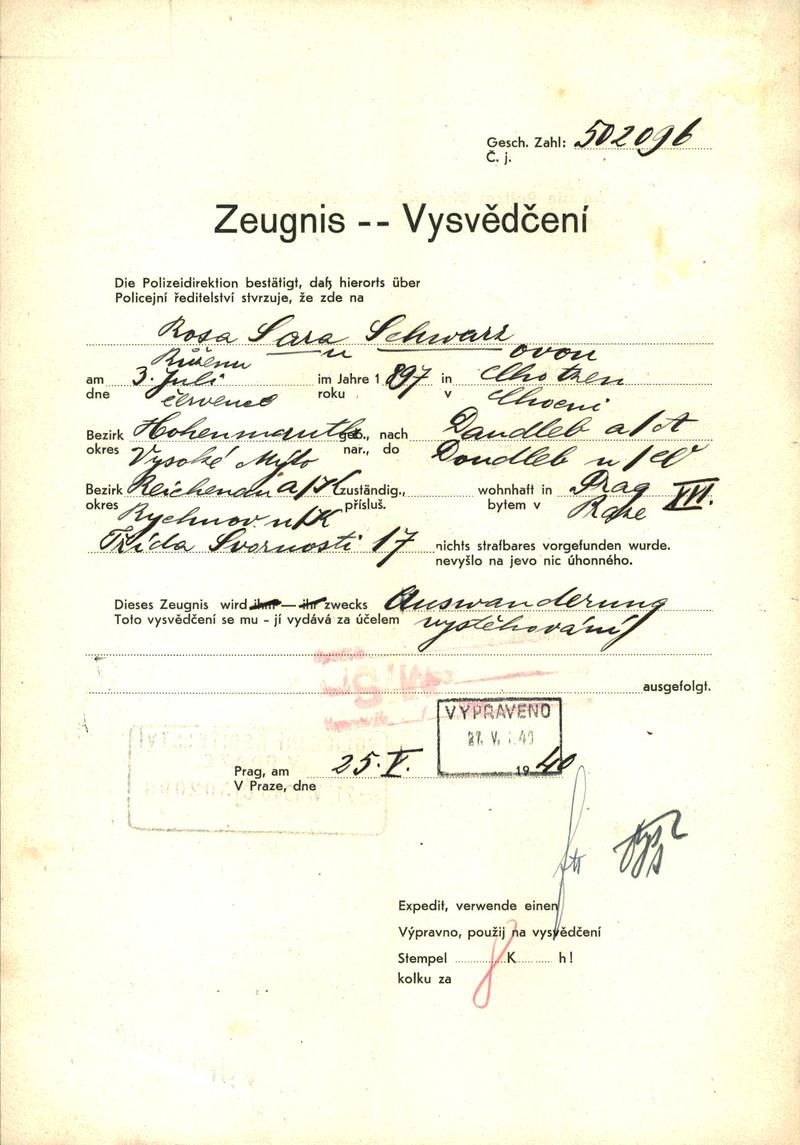 Gesch. Zahl: 502096
Č. j.
Zeugnis -- Vysvědčení
Die Polizeidirektion bestätigt, daß hierorts über
Policejní ředitelství stvrzuje, že zde na
Rosa Sara Schwarz
Růženu u ovou
am 3. Juli im Jahre 1 897 in Chotzen
dne července roku v Chocni
Bezirk Hohenmauth geb., nach Daudleb a/A
okres Vysoké Mýto nar., do Doudleb n/O
Bezirk Reichenau a/K zuständig., wohnhaft in Prag XVI.
okres Rychnov n/K přísluš. bytem v Praze
Třída Svornosti 17 nichts strafbares vorgefunden wurde.
nevyšlo na jevo nic úhonného.
Dieses Zeugnis wird ihm — ihr zwecks Auswanderung
Toto vysvědčení se mu - jí vydává za účelem vystěhování
ausgefolgt.
VYPRAVENO
27. V. 40
Prag, am 25. V. 19 40
V Praze, dne
Expedit, verwende einen
Výpravno, použij na vysvědčení
Stempel 8 K h!
kolku za